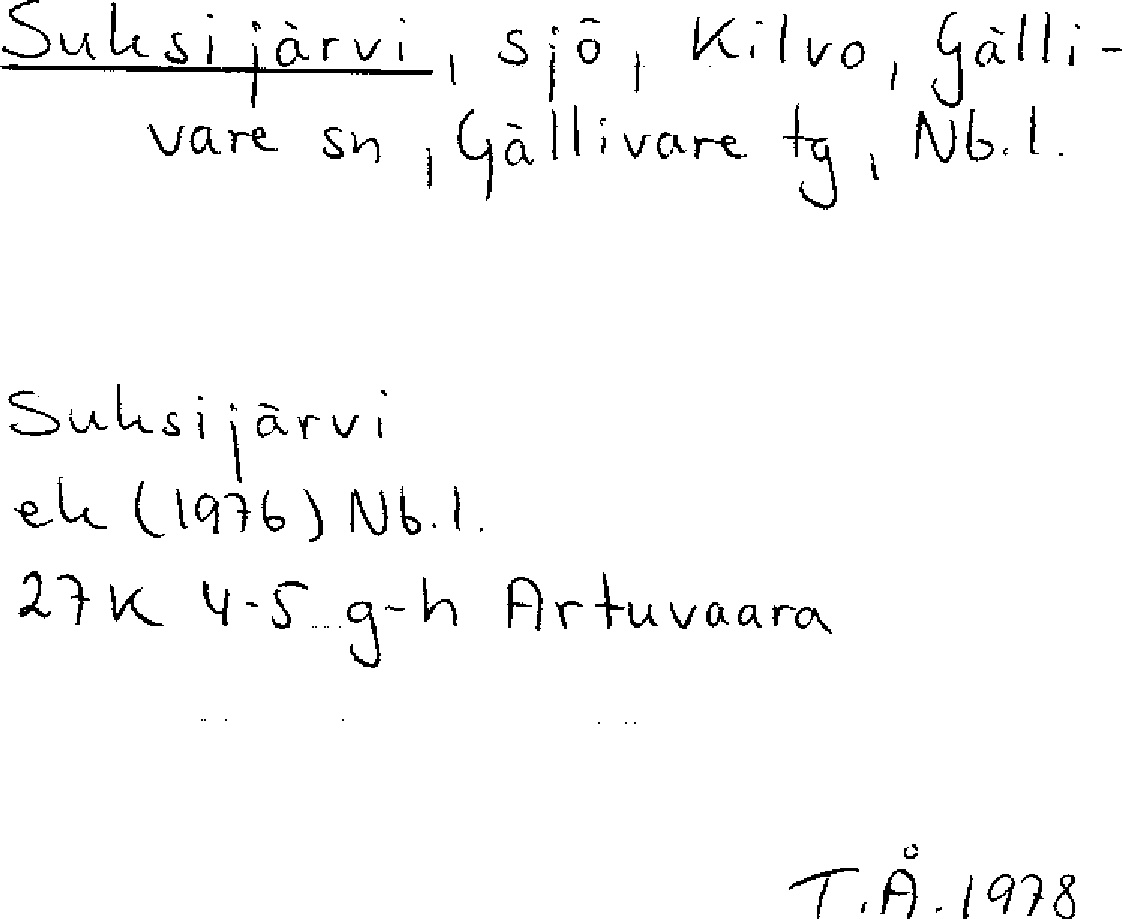 Suksijärvi, sjö, Kilvo, Gälli-
vare sn, Gällivare tg, Nb.l.
Suksijärvi
ek (1976) Nb.l.
27K 4-5 g-h Artuvaara
T.Å. 1978